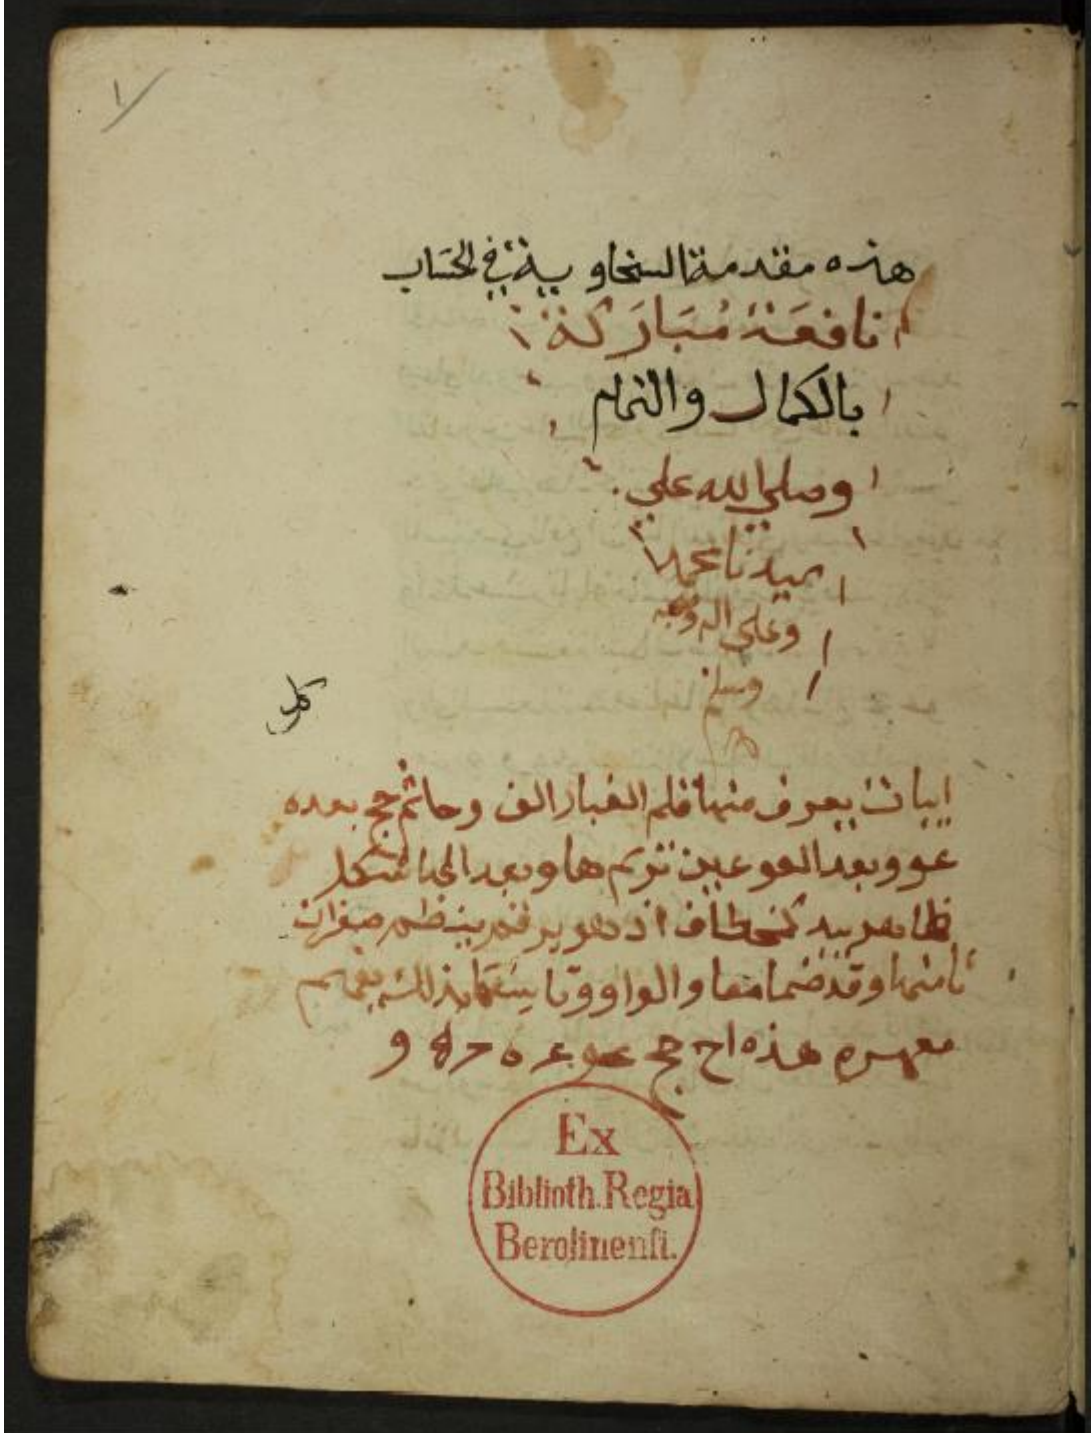 ١
هذه مقدمة السخاوية في الحساب
نافعة مباركة
بالكمال والتمام
وصلي الله علي
سيدنا محمد
وعلي اله وصحبه
وسلم
ابيات يعرف منها قلم الغبار الف وحا ثم حج بعده
عو وبعد العو عين ترسم ها وبعد الها شكل
ظاهر يبد كخطاف اذ هو يرقم صفران
ثامنها وقد ضما معا والواو تاسعها بذلك يفهم
هذه اح حج عو ع ه
Ex
Biblioth. Regia
Berolinensi.